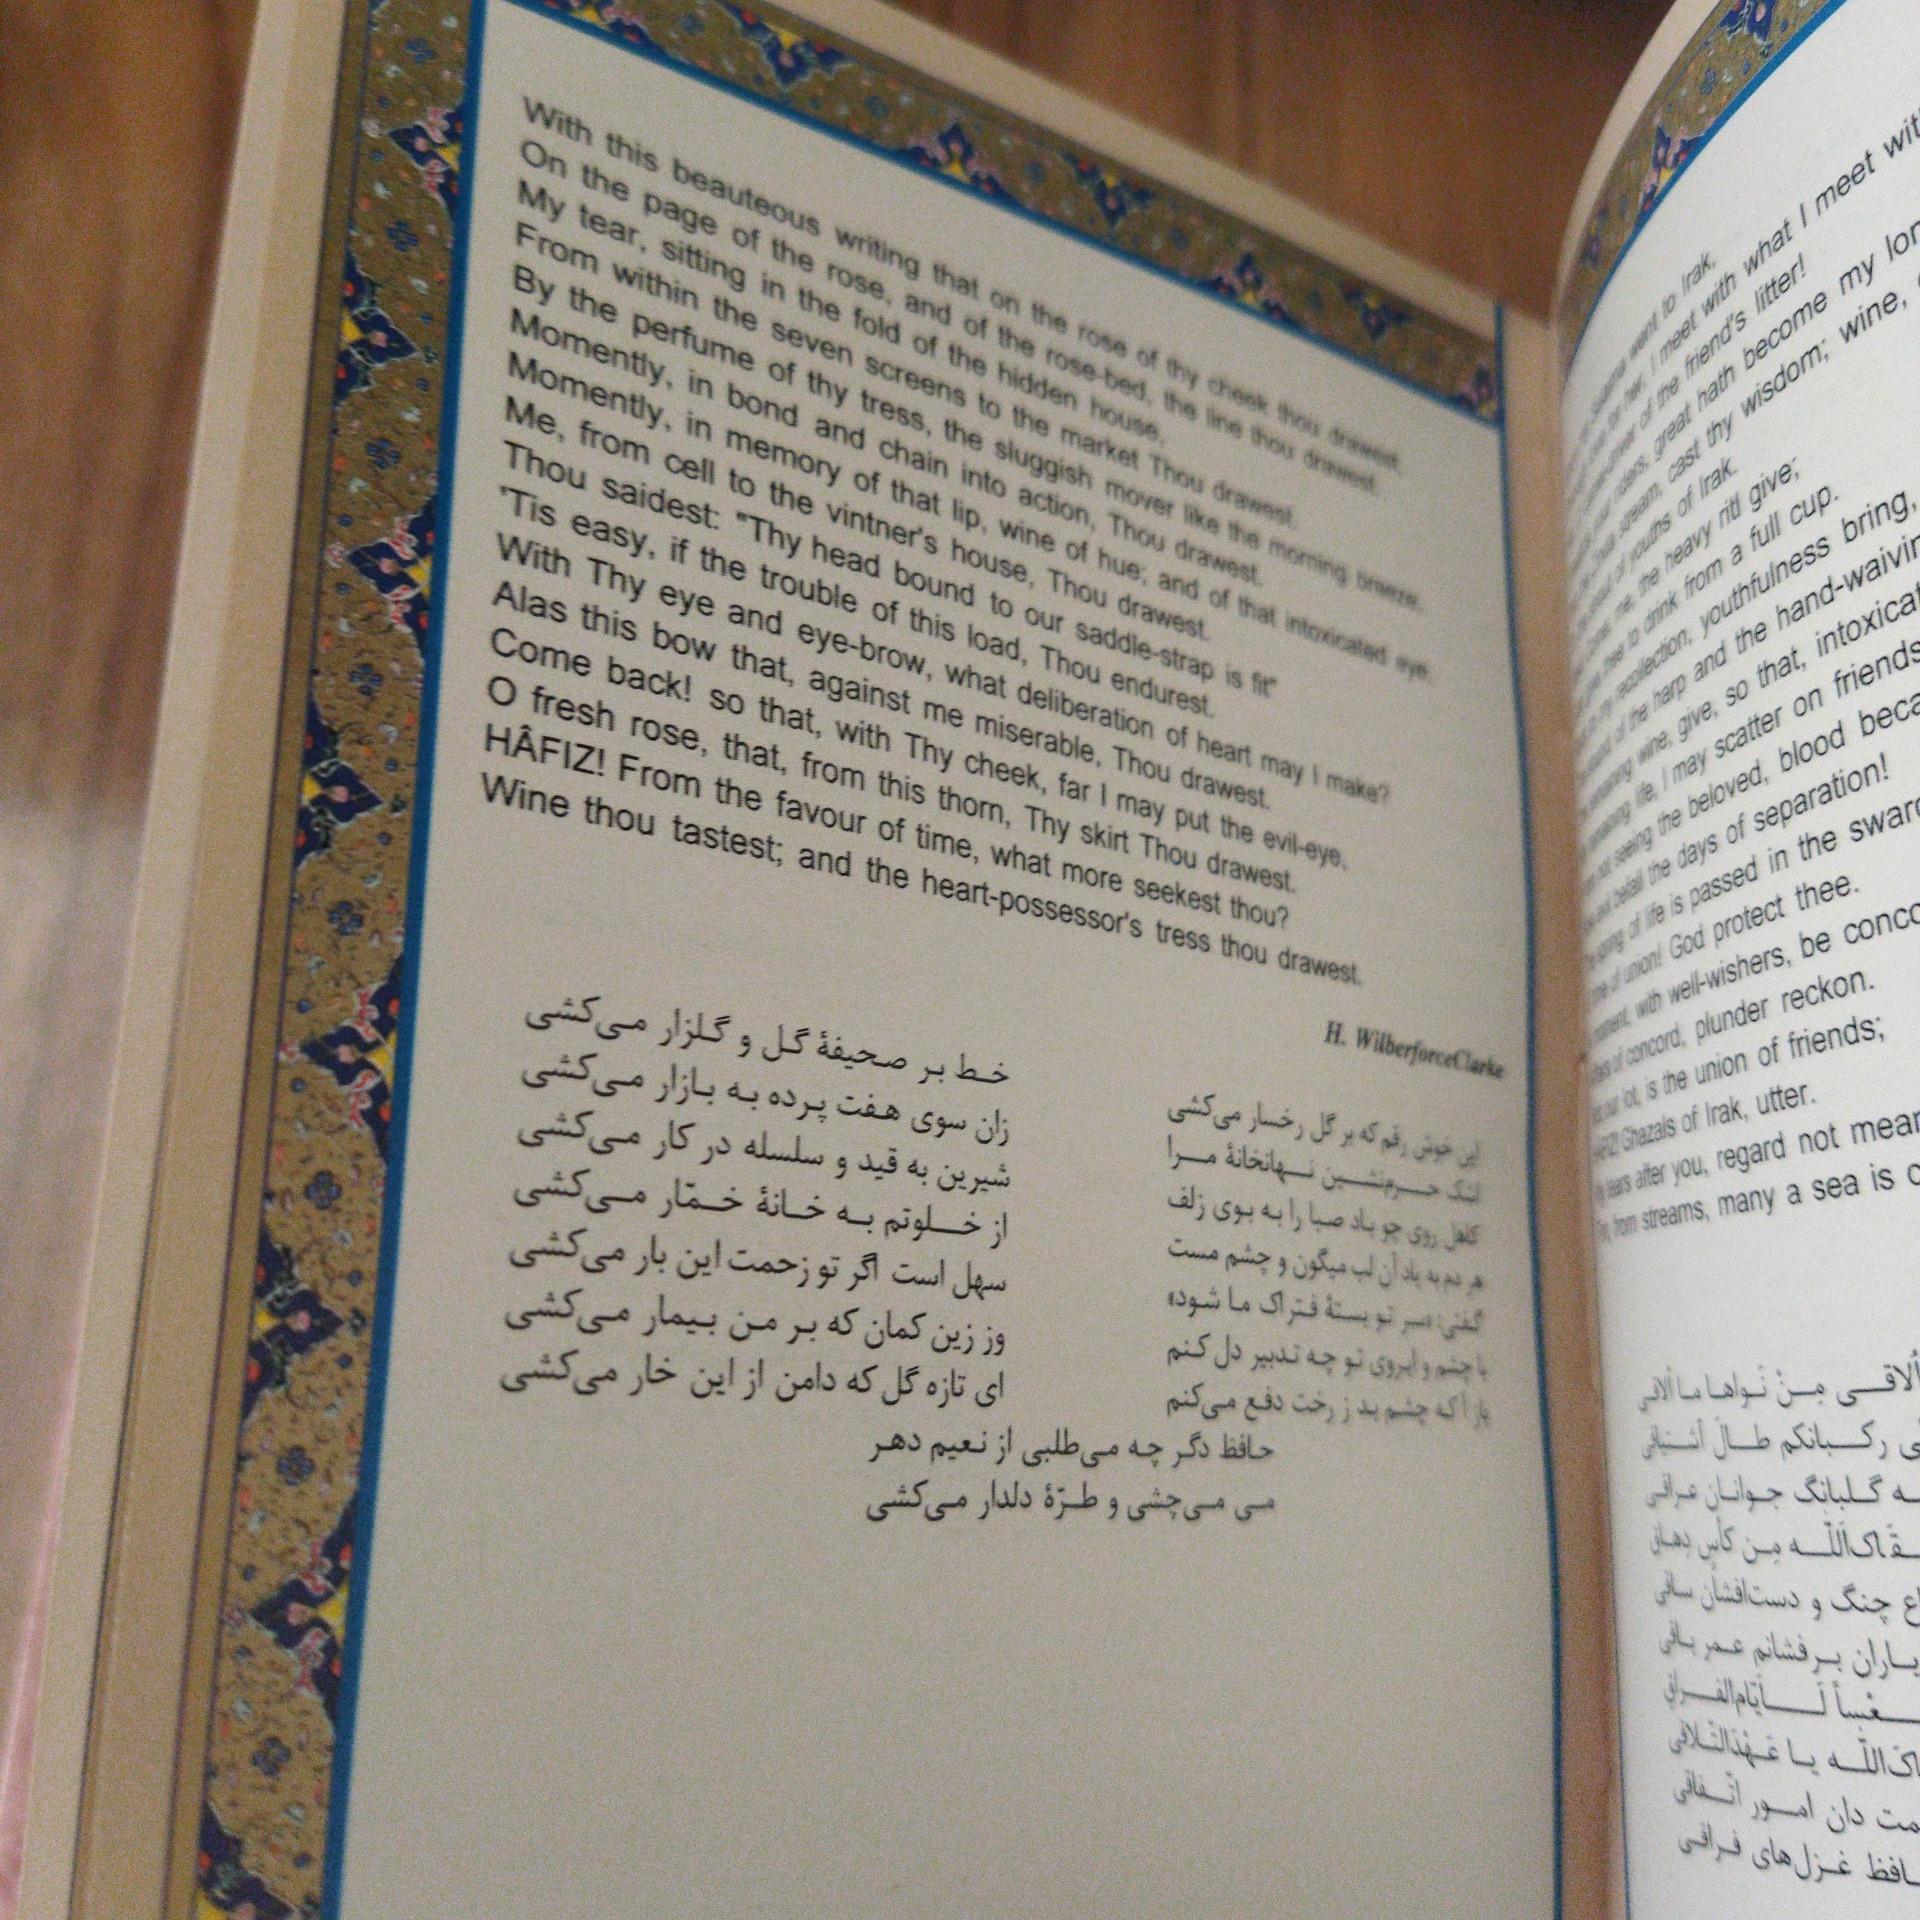 With this beauteous writing that on the rose of thy cheek thou drawest.
On the page of the rose, and of the rose-bed, the line thou drawest.
My tear, sitting in the fold of the hidden house,
From within the seven screens to the market Thou drawest.
By the perfume of thy tress, the sluggish mover like the morning breeze,
Momently, in bond and chain into action, Thou drawest.
Momently, in memory of that lip, wine of hue; and of that intoxicated eye,
Me, from cell to the vintner's house, Thou drawest.
Thou saidest: "Thy head bound to our saddle-strap is fit"
'Tis easy, if the trouble of this load, Thou endurest.
With Thy eye and eye-brow, what deliberation of heart may I make?
Alas this bow that, against me miserable, Thou drawest.
Come back! so that, with Thy cheek, far I may put the evil-eye,
O fresh rose, that, from this thorn, Thy skirt Thou drawest.
HÂFIZ! From the favour of time, what more seekest thou?
Wine thou tastest; and the heart-possessor's tress thou drawest.
H. WilberforceClarke
این خوش رقم که بر گل رخسار می‌کشی خط بر صحیفهٔ گل و گلزار می‌کشی
اشک حرم‌نشین نهانخانهٔ مرا زان سوی هفت پرده به بازار می‌کشی
کاهل روی چو باد صبا را به بوی زلف شیرین به قید و سلسله در کار می‌کشی
هر دم به یاد آن لب میگون و چشم مست از خلوتم به خانهٔ خمّار می‌کشی
گفتی: «سر تو بستهٔ فتراک ما شود» سهل است اگر تو زحمت این بار می‌کشی
با چشم و ابروی تو چه تدبیر دل کنم وز زین کمان که بر من بیمار می‌کشی
باز آ که چشم بد ز رخت دفع می‌کنم ای تازه گل که دامن از این خار می‌کشی
حافظ دگر چه می‌طلبی از نعیم دهر
می می‌چشی و طرّهٔ دلدار می‌کشی
went to Irak,
for her, I meet with what I meet
of the friend's litter!
great hath become my
cast thy wisdom; wine,
of youths of Irak.
me, the heavy ritl give;
to drink from a full cup.
recollection, youthfulness bring,
of the harp and the
wine, give, so that,
life, I may scatter on friends
not seeing the beloved, blood
befall the days of separation!
of life is passed in the
of union! God protect thee.
with well-wishers, be
of concord, plunder reckon.
our lot, is the union of friends;
HÂFIZ! Ghazals of Irak, utter.
tears after you, regard not
from streams, many a sea is
ألاقی مِنْ نَواها ما ألاقی
رکبانکم طال اشتیاقی
گلبانگ جوانان عراقی
اللّه مِن کأسٍ دِهاقِ
چنگ و دست‌افشان ساقی
یاران برفشانم عمر باقی
لأیّام‌الفراقِ
اللّه یا عَهْدَالتّلاقی
دان امور اتّفاقی
غزل‌های فراقی